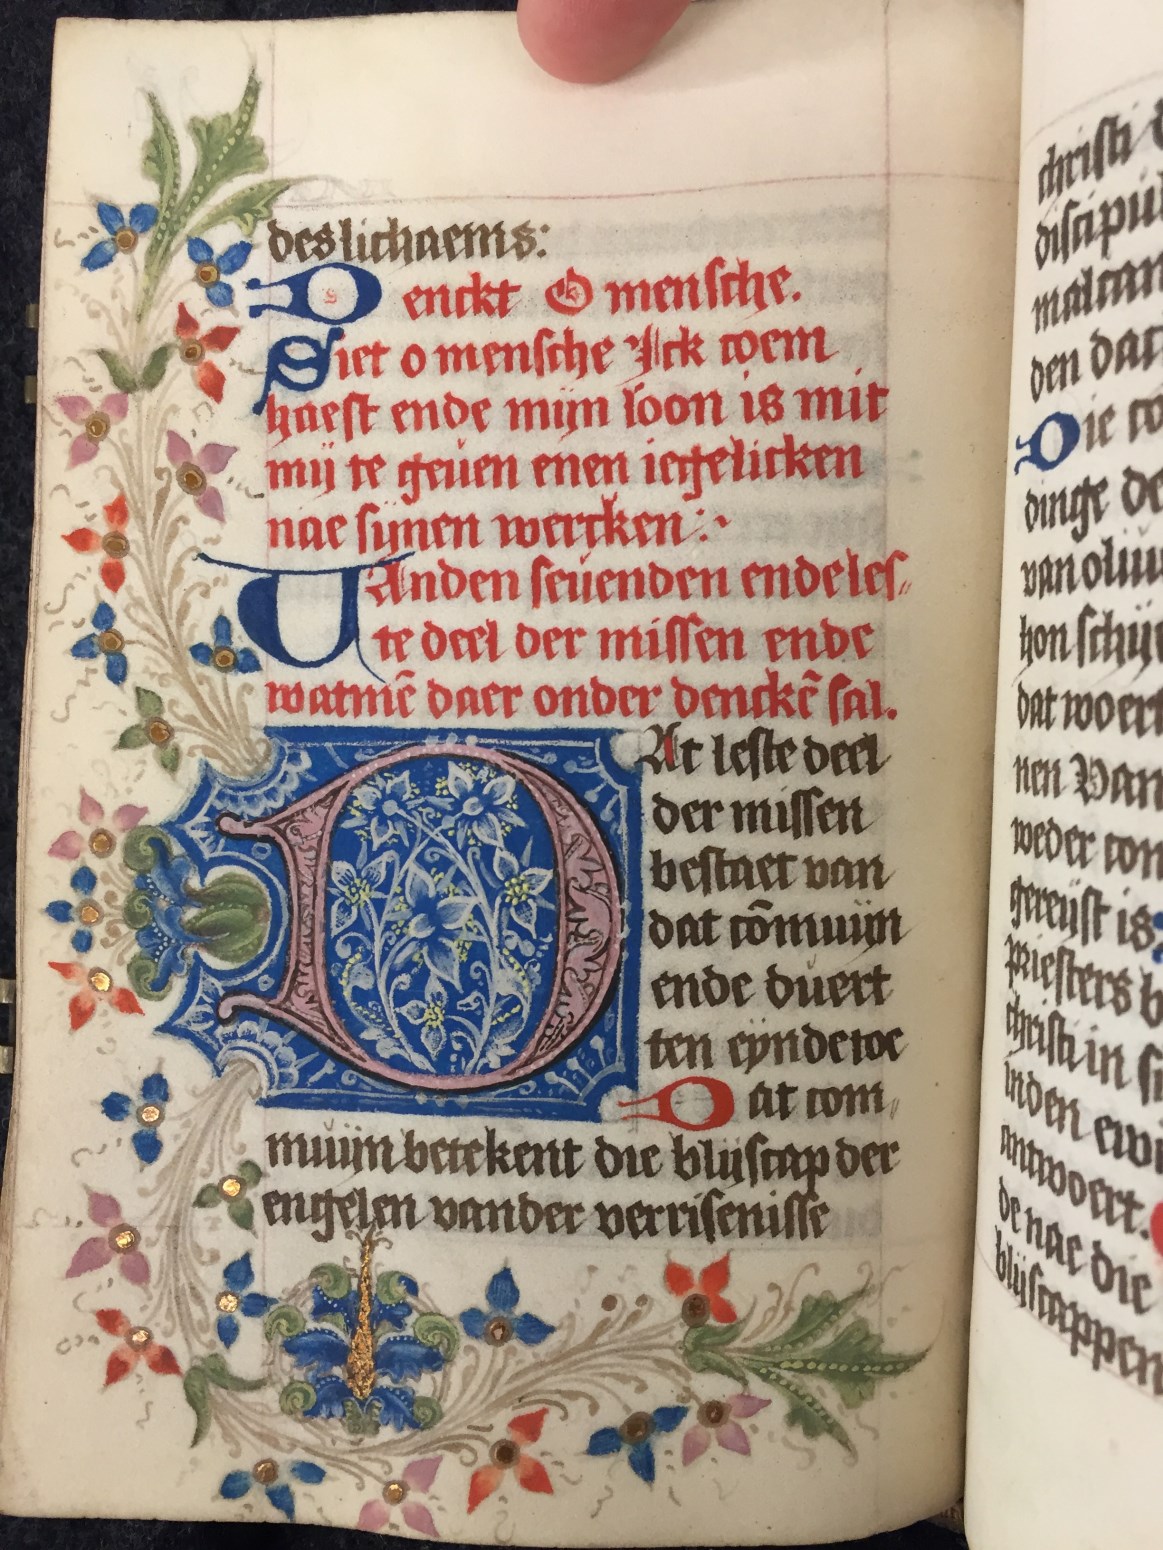 des lichaems:
Denckt O mensche.
Siet o mensche Ick coem
haest ende mijn loon is mit
mij te geuen enen iegelicken
nae sijnen wercken:
VAnden seuenden ende les-
te deel der missen ende
watmē daer onder denckē sal.
DAt leste deel
der missen
bestaet van
dat cōmuijn
ende duert
ten eynde toe
Dat com
muijn betekent die blijscap der
engelen vander verrisenisse
christi
discipu
den dat
Die co
dinge de
van oliu
hon schij
dat woert
nen Van
weder com
gereijst is
priesters b
christi in s
inden ewi
antwoert.
de nae die
blijscappen